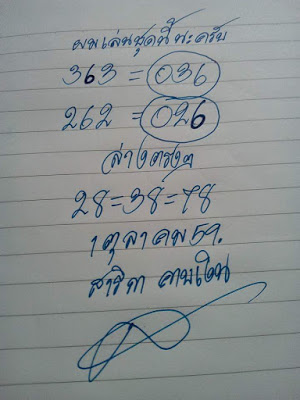 ผมเล่นชุดนี้นะครับ
363 = 036
262 = 026
ล่างตรงๆ
28=38=78
1 ตุลาคม 59.
สาริกา